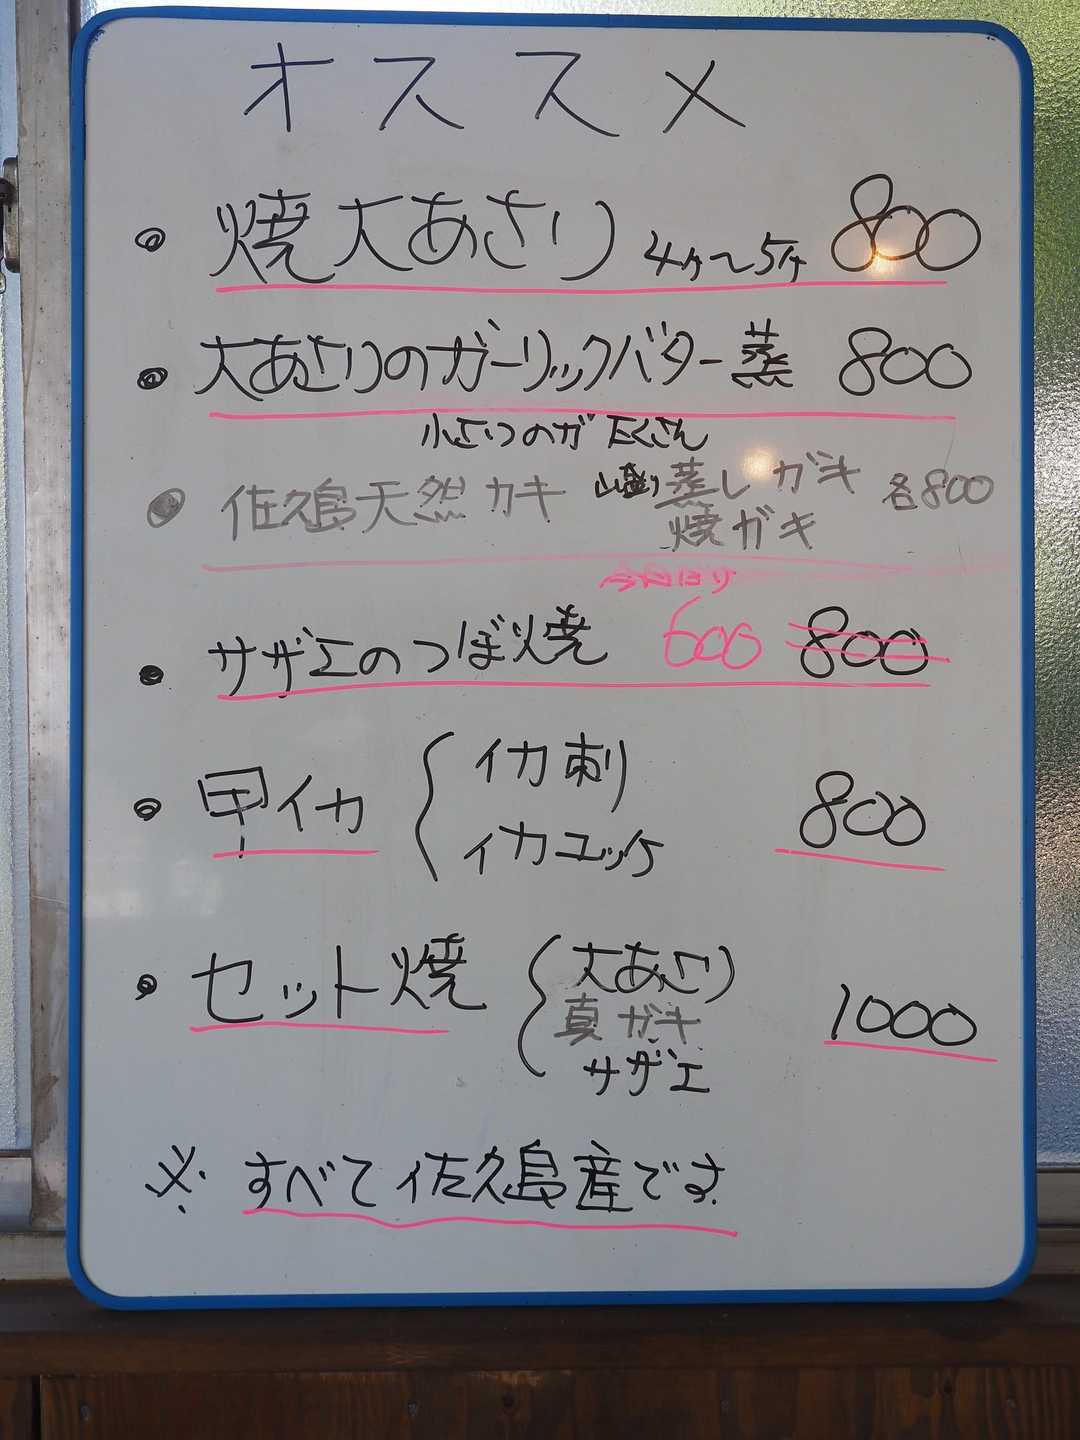 オススメ
・焼大あさり 4ヶ〜5ヶ 800
・大あさりのガーリックバター蒸 800
小さいのが たくさん
・佐久島天然カキ 山盛り 蒸しガキ 各800
焼ガキ
今日だけ
・サザエのつぼ焼 600 800
・甲イカ { イカ刺
イカユッケ
800
・セット焼 { 大あさり
真ガキ
サザエ
1000
※すべて佐久島産です